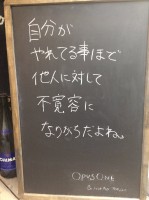 自分が
やれてる事ほど
他人に対して
不寛容に
なりがちだよね。
OPUS ONE